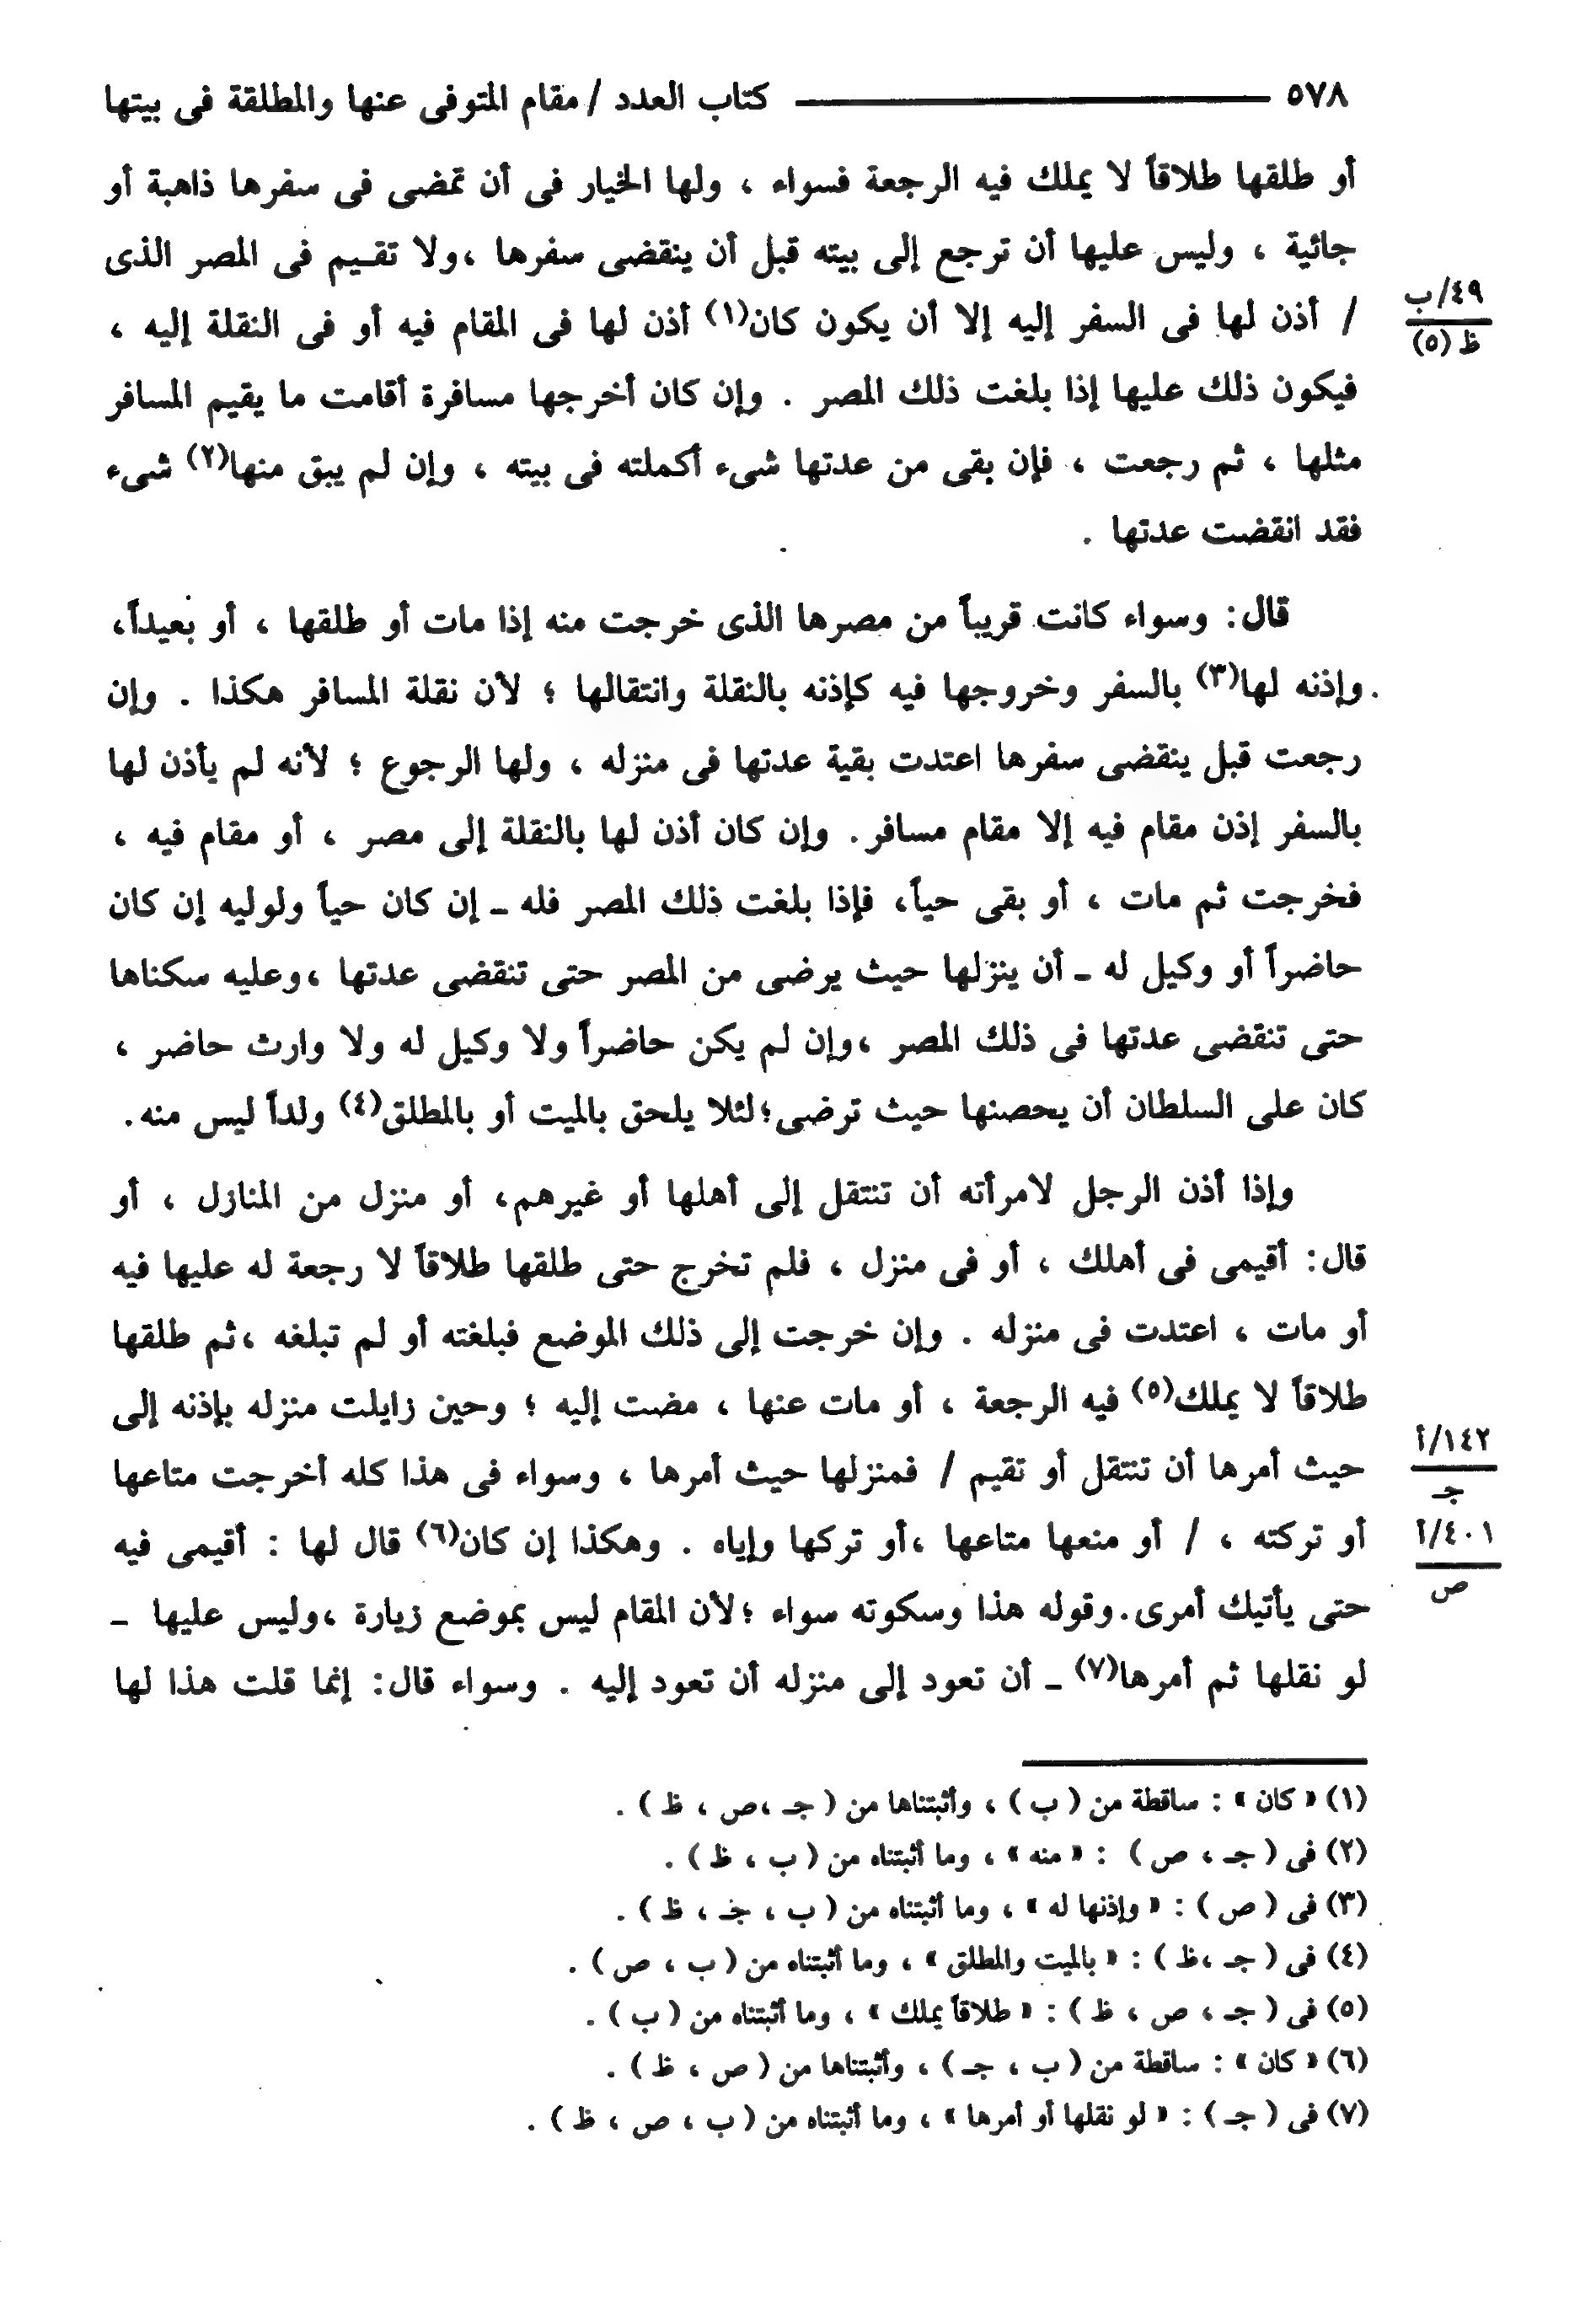 ٥٧٨ كتاب العدد / مقام المتوفى عنها والمطلقة فى بيتها
أو طلقها طلاقاً لا يملك فيه الرجعة فسواء ، ولها الخيار فى أن تمضى فى سفرها ذاهبة أو
جائية ، وليس عليها أن ترجع إلى بيته قبل أن ينقضى سفرها ،ولا تقـيم فى المصر الذى
/ أذن لها فى السفر إليه إلا أن يكون كان(١) أذن لها فى المقام فيه أو فى النقلة إليه ،
٤٩/ب
ظ (٥)
فيكون ذلك عليها إذا بلغت ذلك المصر . وإن كان أخرجها مسافرة أقامت ما يقيم المسافر
مثلها ، ثم رجعت ، فإن بقى من عدتها شىء أكملته فى بيته ، وإن لم يبق منها(٢) شىء
فقد انقضت عدتها .
قال: وسواء كانت قريباً من مصرها الذى خرجت منه إذا مات أو طلقها ، أو بعيداً،
وإذنه لها(٣) بالسفر وخروجها فيه كإذنه بالنقلة وانتقالها ؛ لأن نقلة المسافر هكذا . وإن
رجعت قبل ينقضى سفرها اعتدت بقية عدتها فى منزله ، ولها الرجوع ؛ لأنه لم يأذن لها
بالسفر إذن مقام فيه إلا مقام مسافر. وإن كان أذن لها بالنقلة إلى مصر ، أو مقام فيه ،
فخرجت ثم مات ، أو بقى حياً، فإذا بلغت ذلك المصر فله ـ إن كان حياً ولوليه إن كان
حاضراً أو وكيل له ـ أن ينزلها حيث يرضى من المصر حتى تنقضى عدتها ،وعليه سكناها
حتى تنقضى عدتها فى ذلك المصر ،وإن لم يكن حاضراً ولا وكيل له ولا وارث حاضر ،
كان على السلطان أن يحصنها حيث ترضى؛لئلا يلحق بالميت أو بالمطلق(٤) ولداً ليس منه.
وإذا أذن الرجل لامرأته أن تنتقل إلى أهلها أو غيرهم، أو منزل من المنازل ، أو
قال: أقيمى فى أهلك ، أو فى منزل ، فلم تخرج حتى طلقها طلاقاً لا رجعة له عليها فيه
أو مات ، اعتدت فى منزله . وإن خرجت إلى ذلك الموضع فبلغته أو لم تبلغه ،ثم طلقها
طلاقاً لا يملك(٥) فيه الرجعة ، أو مات عنها ، مضت إليه ؛ وحين زايلت منزله بإذنه إلى
حيث أمرها أن تنتقل أو تقيم / فمنزلها حيث أمرها ، وسواء فى هذا كله أخرجت متاعها
١٤٢/أ
جـ
أو تركته ، / أو منعها متاعها ،أو تركها وإياه . وهكذا إن كان(٦) قال لها : أقيمى فيه
٤٠١/أ
ص
حتى يأتيك أمرى.وقوله هذا وسكوته سواء ؛لأن المقام ليس بموضع زيارة ،وليس عليها ـ
لو نقلها ثم أمرها(٧) ـ أن تعود إلى منزله أن تعود إليه . وسواء قال: إنما قلت هذا لها
(١) « كان » : ساقطة من ( ب ) ، وأثبتناها من ( جـ ،ص ، ظ ) .
(٢) فى ( جـ ، ص ) : « منه » ، وما أثبتناه من ( ب ، ظ ) .
(٣) فى ( ص ) : « وإذنها له » ، وما أثبتناه من ( ب ، جـ ، ظ ) .
(٤) فى ( جـ ،ظ ) : « بالميت والمطلق » ، وما أثبتناه من ( ب ، ص ) .
(٥) فى ( جـ ، ص ، ظ ) : « طلاقاً يملك » ، وما أثبتناه من ( ب ) .
(٦) « كان » : ساقطة من ( ب ، جـ ) ، وأثبتناها من ( ص ، ظ ) .
(٧) فى ( جـ ) : « لو نقلها أو أمرها » ، وما أثبتناه من ( ب ، ص ، ظ ) .